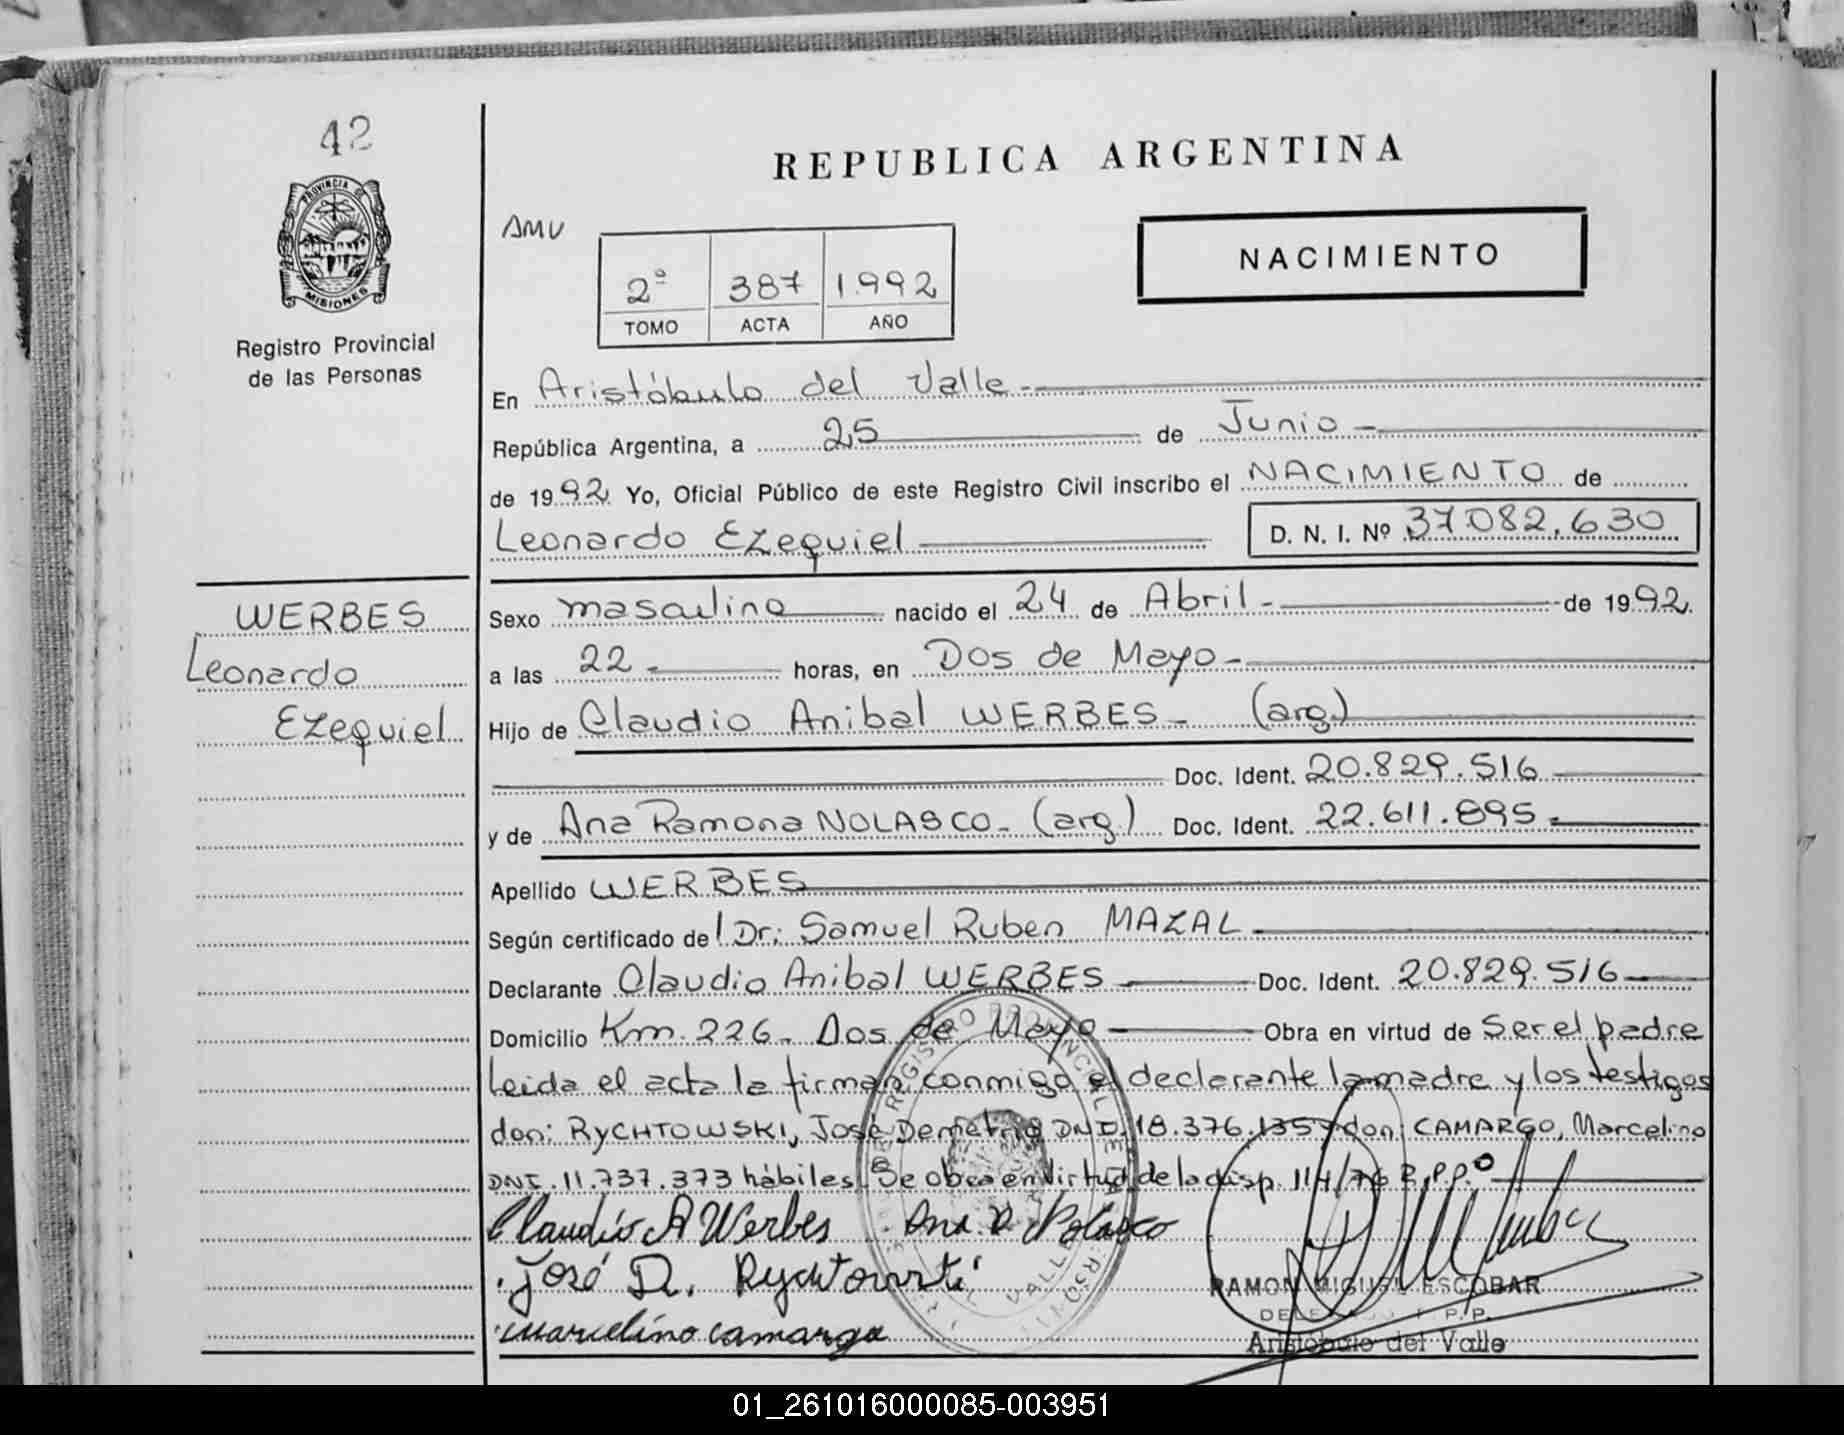 42
PROVINCIA DE
MISIONES
Registro Provincial
de las Personas
WERBES
Leonardo
Ezequiel
REPUBLICA ARGENTINA
AMV
2ª 387 1.992
TOMO ACTA AÑO
NACIMIENTO
En Aristóbulo del Valle.-
República Argentina, a 25 de Junio -
de 1992. Yo, Oficial Público de este Registro Civil inscribo el NACIMIENTO de
Leonardo Ezequiel D. N. I. Nº 37.082.630
Sexo masculino nacido el 24 de Abril - de 1992.
a las 22 - horas, en Dos de Mayo -
Hijo de Claudio Anibal WERBES - (arg.)
Doc. Ident. 20.829.516
y de Ana Ramona NOLASCO - (arg.) Doc. Ident. 22.611.895 -
Apellido WERBES
Según certificado del Dr: Samuel Ruben MAZAL
Declarante Claudio Anibal WERBES Doc. Ident. 20.829.516
Domicilio Km. 226 - Dos de Mayo Obra en virtud de Ser el padre
Leida el acta la firman conmigo el declarante la madre y los testigos
don: RYCHTOWSKI, José Demetrio DNI. 18.376.135 y don: CAMARGO, Marcelino
DNI. 11.737.373 hábiles. Se obra en virtud de la disp. 114/76 R.P.P.
Claudio A Werbes Ana R Nolasco
José D. Rychtowski
RAMON MIGUEL ESCOBAR
DELEGADO R.P.P.
marcelino camargo
Aristóbulo del Valle
01_261016000085-003951